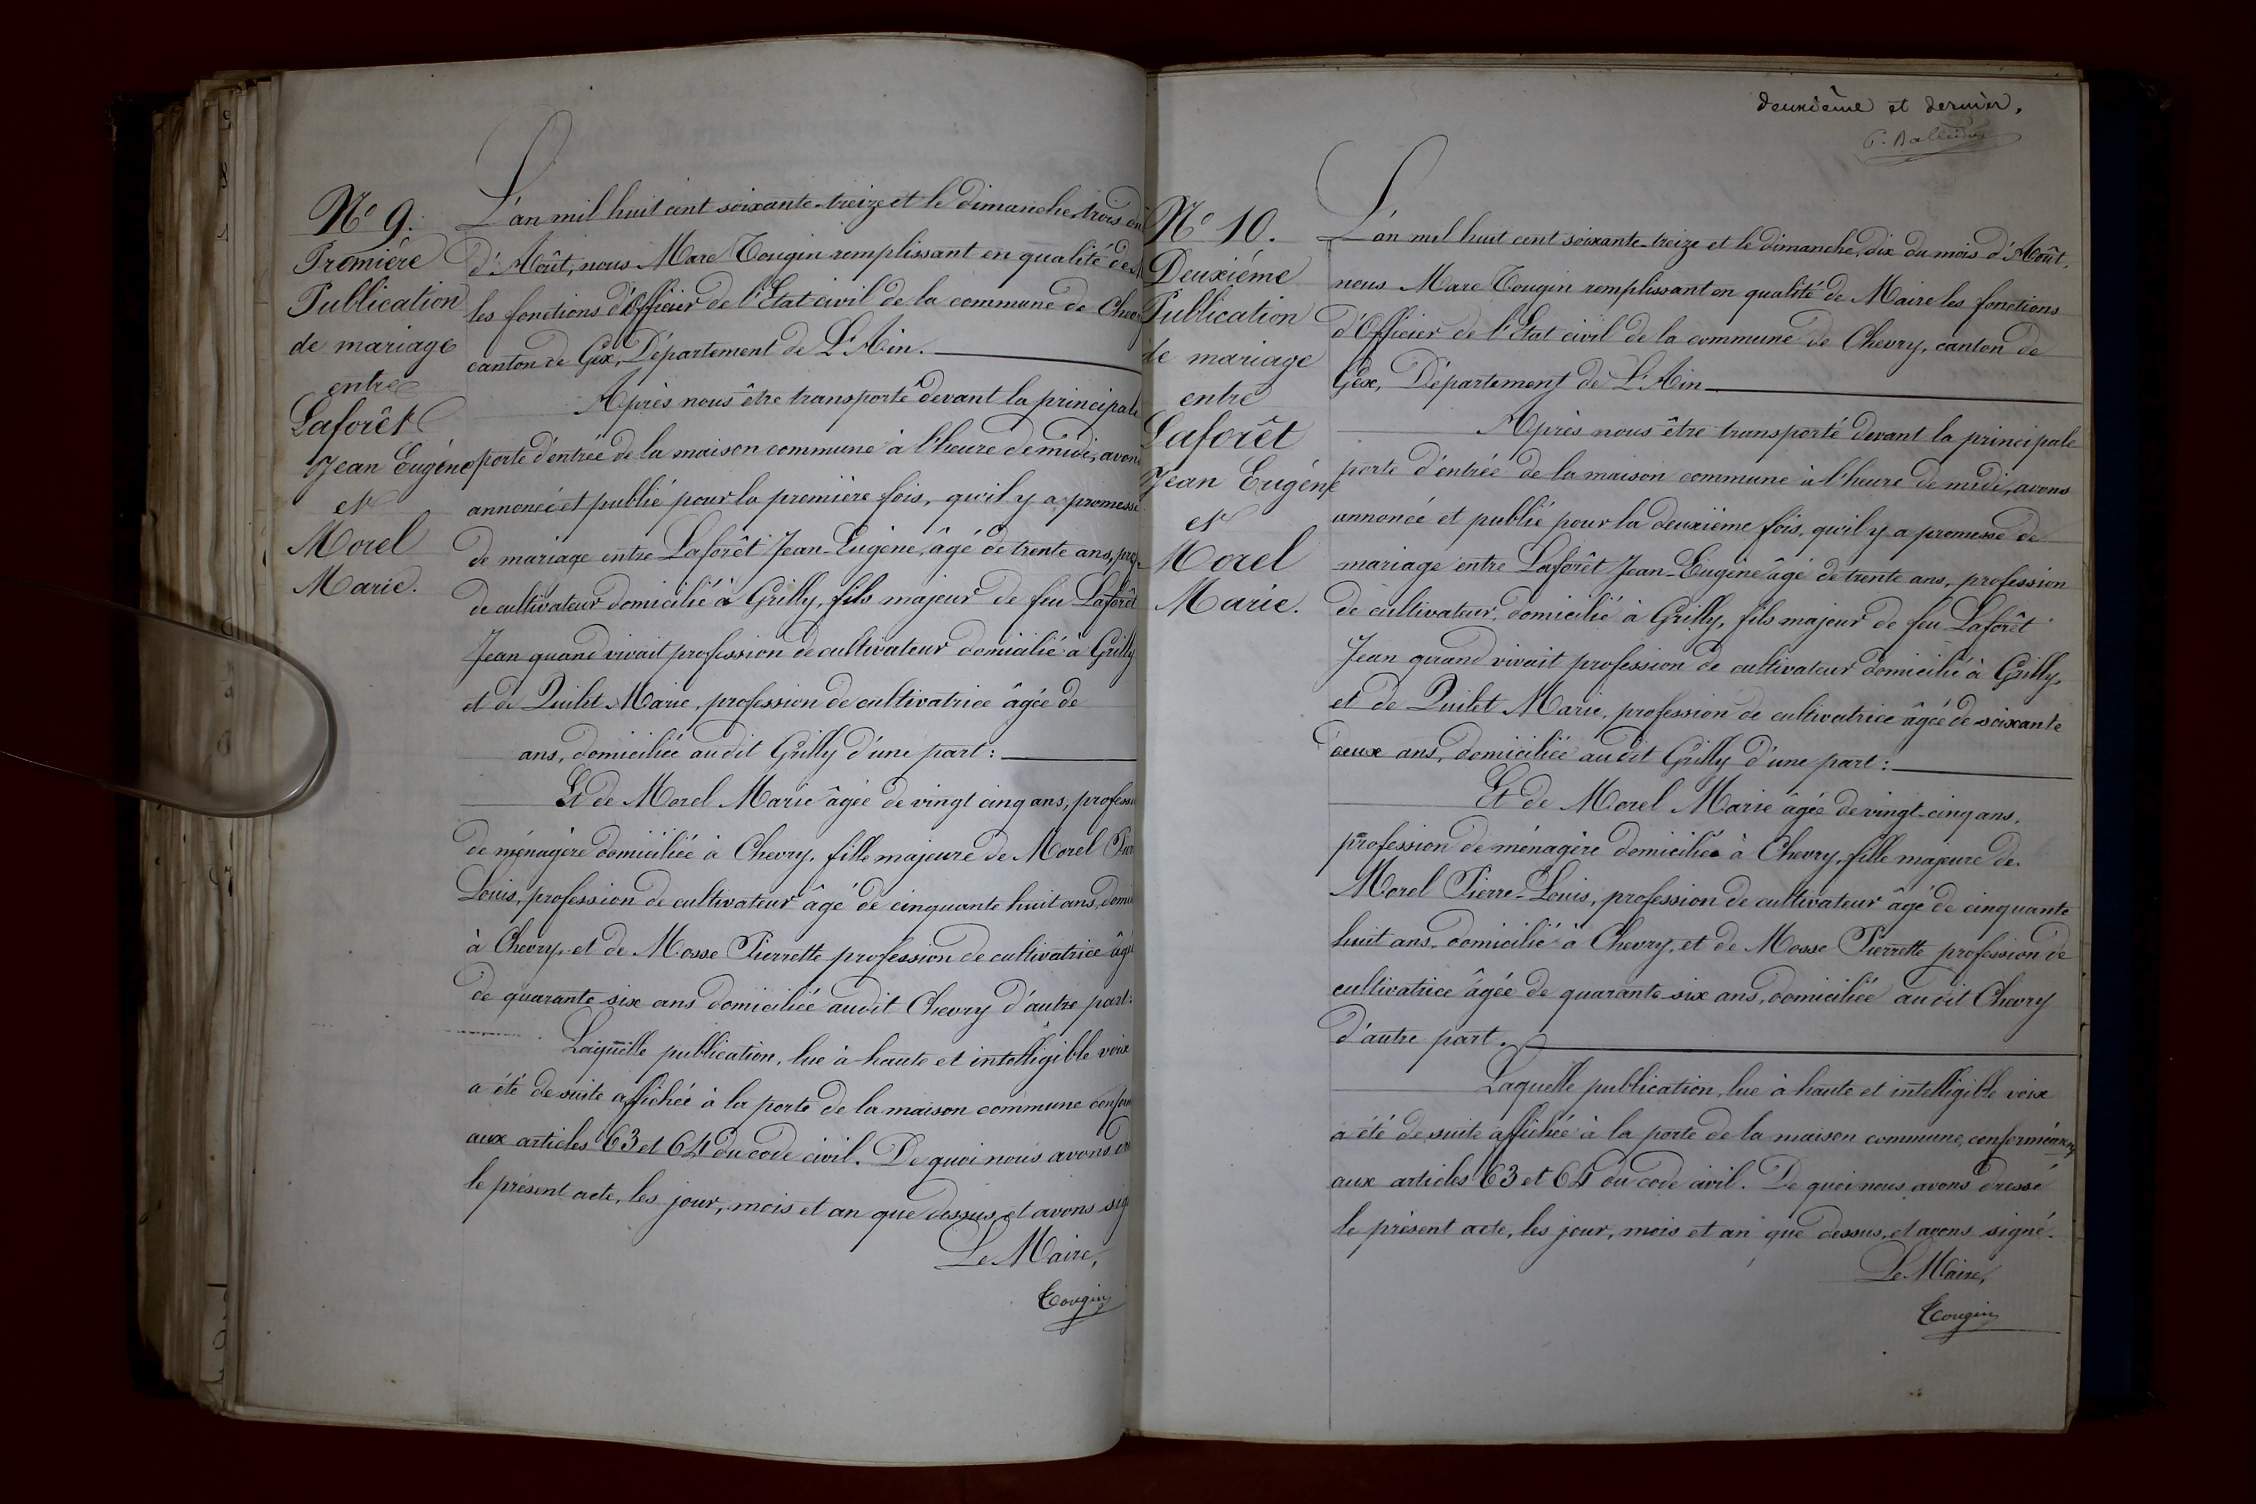 Nº 9.
Première
Publication
de mariage
entre
Laforêt
Jean Eugène
et
Morel
Marie.
L'an mil huit cent soixante-treize et le dimanche, trois du
d'Août, nous Marc Tougin remplissant en qualité de
les fonctions d'Officier de l'Etat civil de la commune de Chev
canton de Gex, Département de L'Ain.
Après nous être transporté devant la principale
porte d'entrée de la maison commune à l'heure de midi, avons
annoncé et publié pour la première fois, qu'il y a promesse
de mariage entre Laforêt Jean-Eugène, âgé de trente ans, prof
de cultivateur domicilié à Grilly, fils majeur de feu Laforêt
Jean quand vivait profession de cultivateur domicilié à Grilly
et de Quilet Marie, profession de cultivatrice âgée de
ans, domiciliée audit Grilly d'une part :
Et de Morel Marie âgée de vingt cinq ans, profess
de ménagère domiciliée à Chevry, fille majeure de Morel Pier
Louis, profession de cultivateur âgé de cinquante huit ans, domi
à Chevry, et de Mosse Pierrette profession de cultivatrice âgé
de quarante-six ans domiciliée audit Chevry d'autre part.
Laquelle publication, lue à haute et intelligible voix
a été de suite affichée à la porte de la maison commune confor
aux articles 63 et 64 du code civil. De quoi nous avons dre
le présent acte, les jour, mois et an que dessus et avons sig
Le Maire,
Tougin
deuxième et dernier.
Nº 10.
Deuxième
Publication
de mariage
entre
Laforêt
Jean Eugène
et
Morel
Marie.
L'an mil huit cent soixante-treize et le dimanche, dix du mois d'Août,
nous Marc Tougin remplissant en qualité de Maire les fonctions
d'Officier de l'Etat civil de la commune de Chevry, canton de
Gex, Département de L'Ain
Après nous être transporté devant la principale
porte d'entrée de la maison commune à l'heure de midi, avons
annoncé et publié pour la deuxième fois, qu'il y a promesse de
mariage entre Laforêt Jean-Eugène âgé de trente ans, profession
de cultivateur, domicilié à Grilly, fils majeur de feu Laforêt
Jean quand vivait profession de cultivateur domicilié à Grilly,
et de Quilet Marie, profession de cultivatrice âgée de soixante
deux ans, domiciliée audit Grilly d'une part :
Et de Morel Marie âgée de vingt-cinq ans,
profession de ménagère domiciliée à Chevry, fille majeure de
Morel Pierre-Louis, profession de cultivateur âgé de cinquante
huit ans, domicilié à Chevry, et de Mosse Pierrette profession de
cultivatrice âgée de quarante-six ans, domiciliée audit Chevry
d'autre part.
Laquelle publication, lue à haute et intelligible voix
a été de suite affichée à la porte de la maison commune, conformément
aux articles 63 et 64 du code civil. De quoi nous avons dressé
le présent acte, les jour, mois et an que dessus, et avons signé.
Le Maire,
Tougin